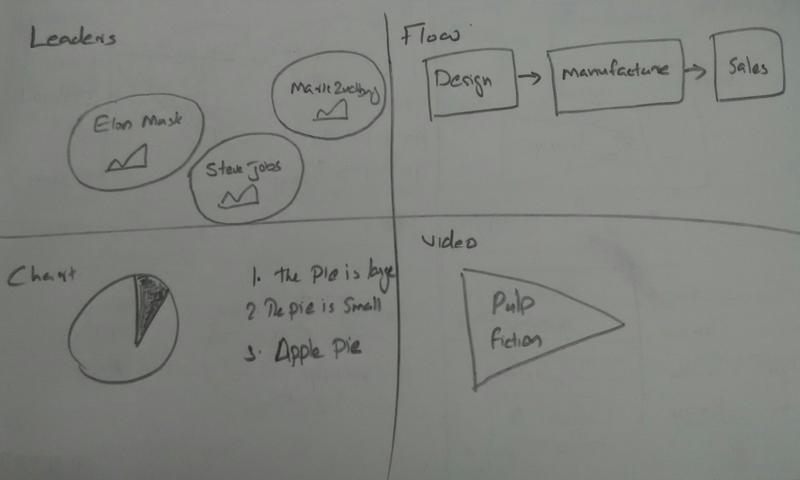 Leaders
Elon Mask
Steve Jobs
Flow
Design
Manufacture
Sales
Chart
1. The Pie is large
2. The pie is Small
3. Apple Pie
Video
Pulp
fiction